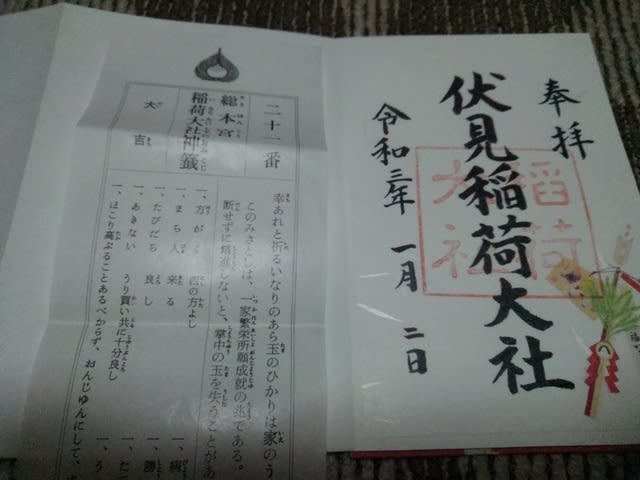 奉拝
伏見稲荷大社
稲荷
大社
令和三年 一月 二日
二十一番
総本宮
稲荷大社神籤
大吉
幸あれと祈るいなりのあら玉のひかりは家のう
このみさとしは、一家繁栄所願成就の兆である。
断せずに精進しないと、掌中の玉を失うことがあ
一、方がく 西の方よし
一、まち人 来る
一、たびだち 良し
一、あきない うり買い共に十分良し
一、ほこり高ぶることあるべからず、おんじゅんにして、
一、病
一、勝
一、た
一、う